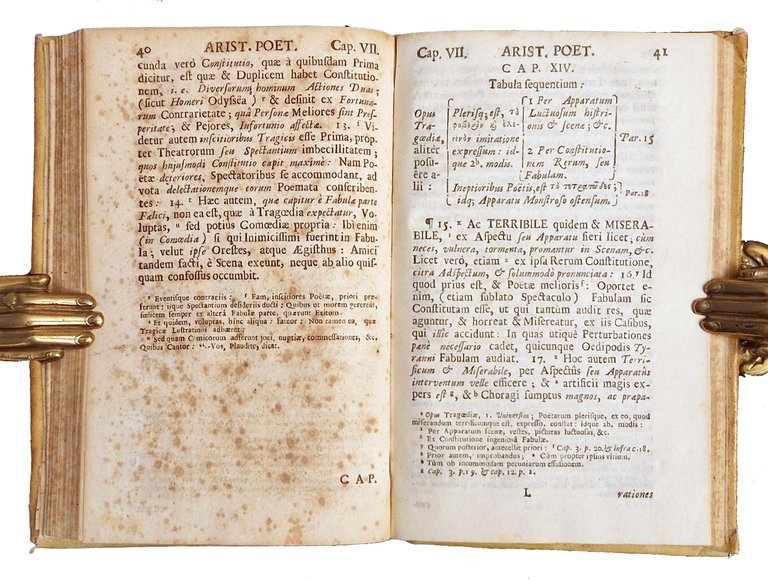 40 ARIST. POET. Cap. VII.
cunda veró Constitutio, quæ à quibusdam Prima
dicitur, est quæ & Duplicem habet Constitutio-
nem, i. e. Diversorum hominum Actiones Duas;
(sicut Homeri Odyssêa) & definit ex Fortuna-
rum Contrarietate; quà Personæ Meliores sint Pros-
peritate; & Pejores, Infortunio affectæ. 13. Vi-
detur autem inscitioribus Tragicis esse Prima, prop-
ter Theatrorum seu Spectantium imbecillitatem;
quos hujusmodi Constitutio capit maximè: Nam Po-
etæ deteriores, Spectatoribus se accommodant, ad
vota delectationemque eorum Poemata conscriben-
tes: 14. Hæc autem, quæ capitur è Fabulæ parte
Fælici, non ea est, quæ à Tragœdia expectatur, Vo-
luptas, sed potius Comœdiæ propria: Ibi enim
(in Comœdia) si qui Inimicissimi fuerint in Fabu-
la; velut ipse Orestes, atque Ægisthus: Amici
tandem facti, è Scena exeunt, neque ab alio quis-
quam confossus occumbit.
Eventisque contrariis: Fam, inscitiores Poëtæ, priori præ-
ferunt: iique Spectantium desideriis ducti: Quibus ut morem gererent,
felicem semper ex altera Fabulæ parte, quærunt Exitum.
Et quidem, voluptas, hinc aliqua: fateor: Non tamen ea, quæ
Tragicæ Lustrationi adhæret:
Sed quam Comicorum adferunt joci, nuptiæ, commessationes, &c.
Quibus Cantor: Vos, Plaudite, dicat.
CAP.
Cap. VII. ARIST. POET. 41
CAP. XIV.
Tabula sequentium:
Opus Tra-gœdiæ, aliter posu-ère a-lii:
Plerisq; est, τὸ
imitatione
expressum: id-
que 2b. modis.
1 Per Apparatum
Luctuosum histri-
onis & scenæ; &c.
2 Per Constitutio-
nem Rerum, seu
Fabulam.
Par. 15
Ineptioribus Poëtis, est τὸ τερατῶδες;
idq; Apparatu Monstroso ostensum.
Par. 18
¶ 15. Ac TERRIBILE quidem & MISERA-
BILE, ex Aspectu seu Apparatu fieri licet; cùm
neces, vulnera, tormenta, promantur in Scenam, &c.
Licet verò, etiam ex ipsa Rerum Constitutione,
citra Adspectum, & solummodò pronunciata: 16. Id
quod prius est, & Poëtæ melioris: Oportet e-
nim, (etiam sublato Spectaculo) Fabulam sic
Constitutam esse, ut qui tantùm audit res, quæ
aguntur, & horreat & Misereatur, ex iis Casibus,
qui illic accidunt: In quas utique Perturbationes
panè necessariò cadet, quicunque Oedipodis Ty-
ranni Fabulam audiat. 17. Hoc autem Terri-
ficum & Miserabile, per Aspectûs seu Apparatûs
interventum velle efficere; & artificii magis ex-
pers est, & Choragi sumptus magnos, ac præpa-
Opus Tragœdiæ, i. Universim; Poëtarum plerisque, ex eo, quod
miserandum terrificumque est, expresso, constat: idque 2b. modis:
Per Apparatum scenæ, vestes, picturas luctuosas, &c.
Ex Constitutione ingeniosâ Fabulæ.
Quorum posterior, antecellit priori: Cap. 3. p. 20. & infra c. 18.
Prior autem, improbandus; Cùm propter ipsius vitium.
Tùm ob incommodam pecuniarum effusionem.
Cap. 3. p. 19. & cap. 12. p. 2.
L rationes